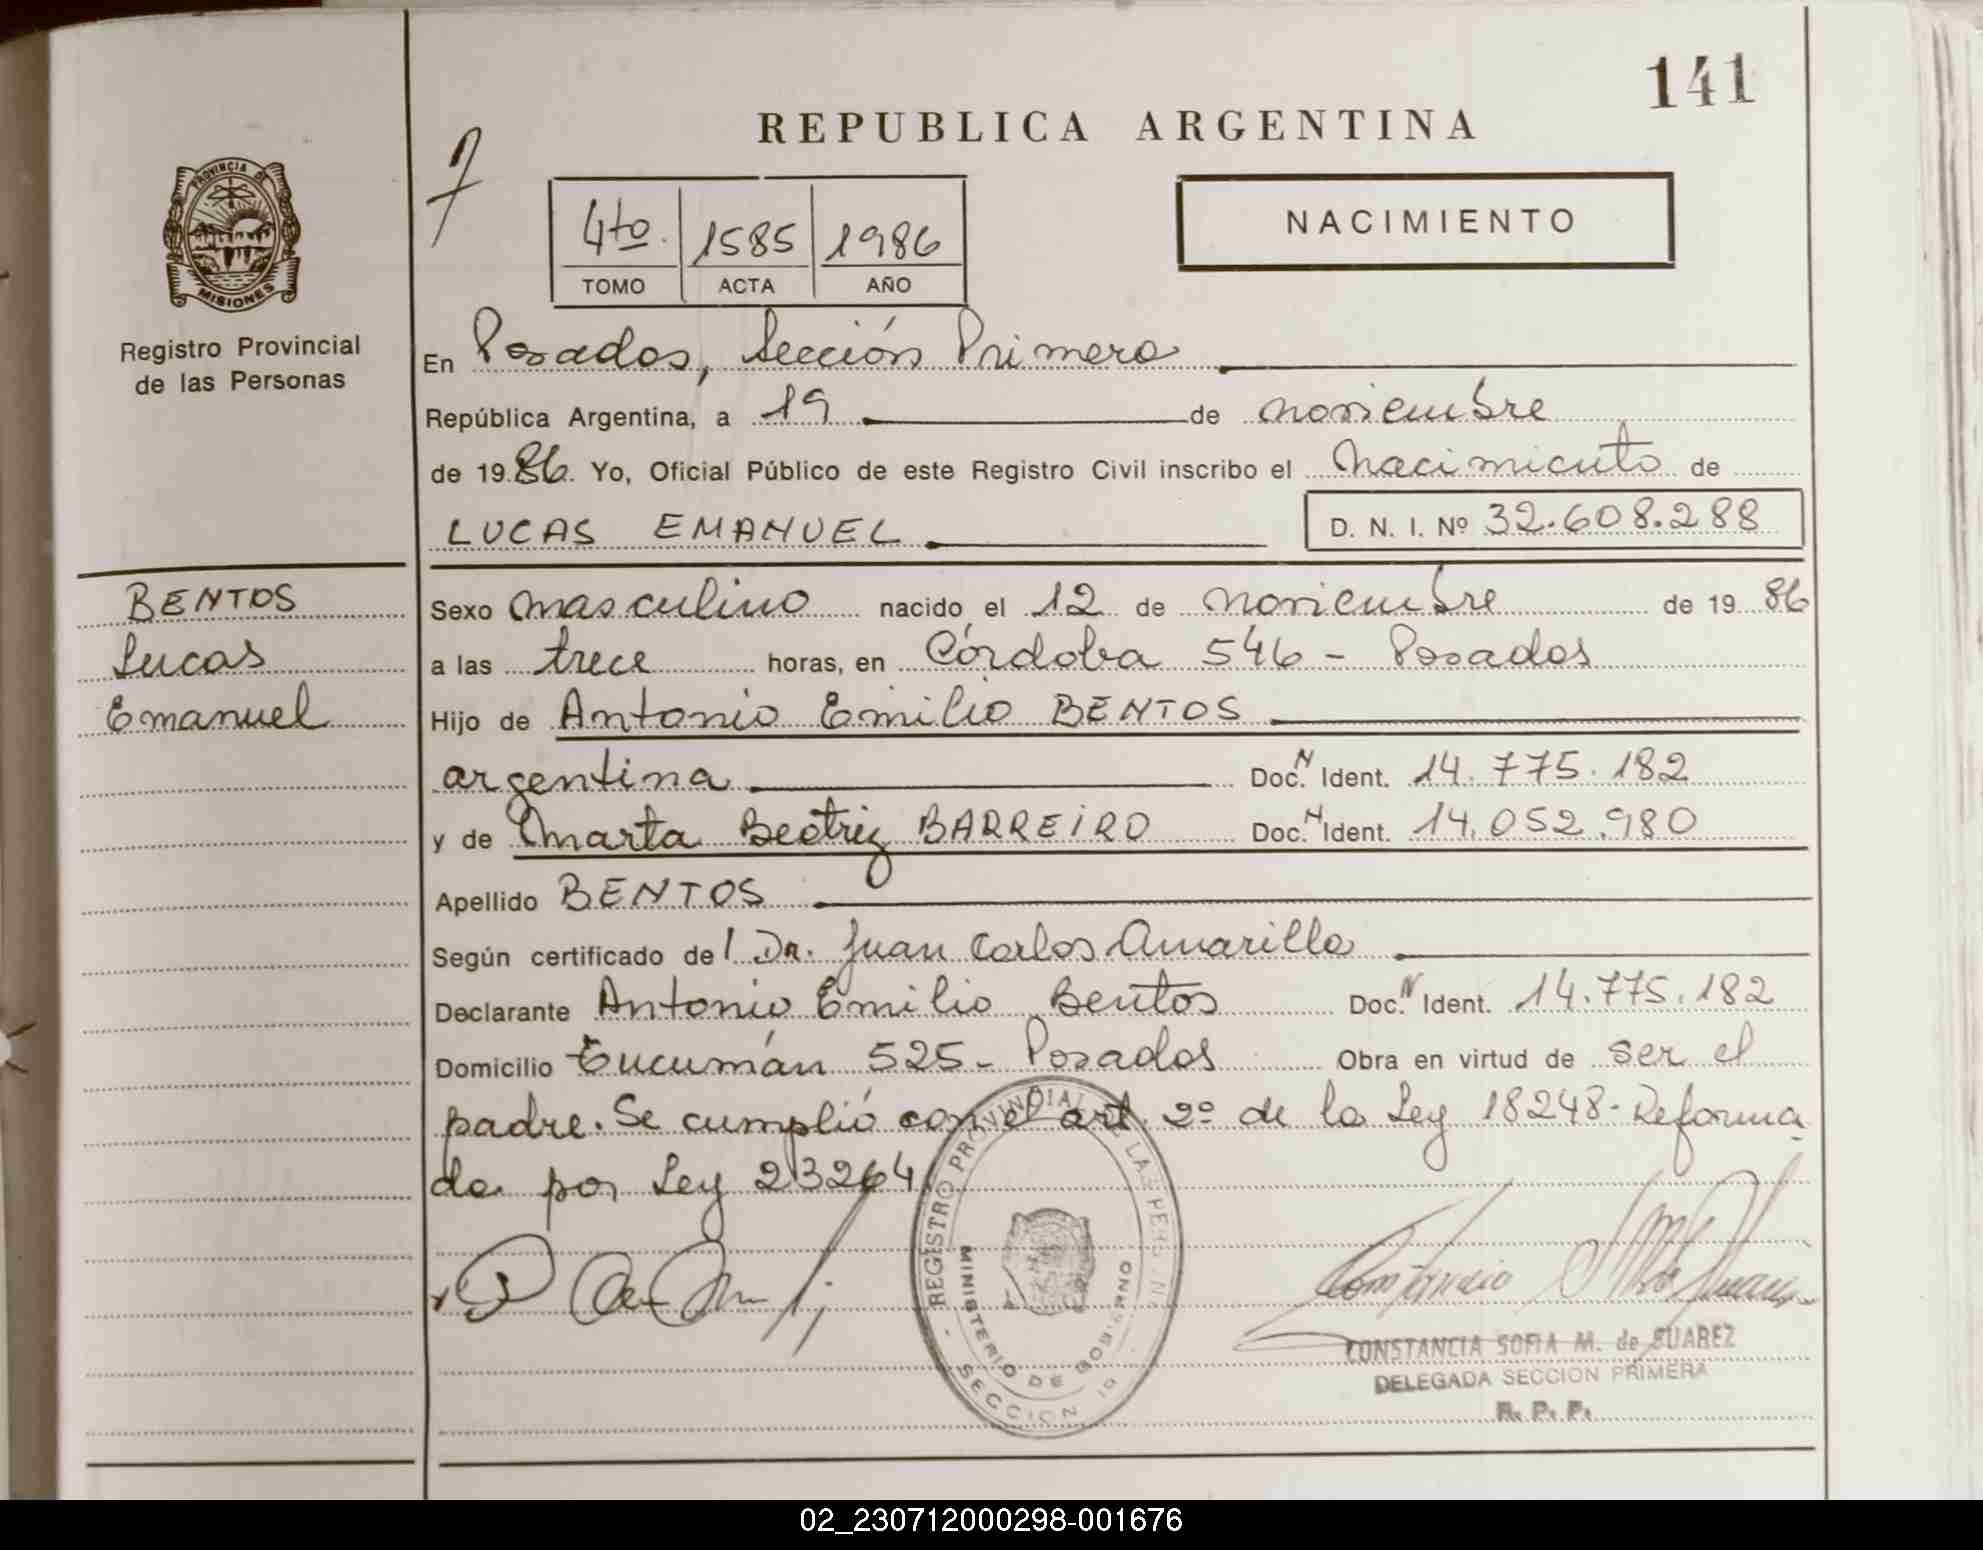 141
REPUBLICA ARGENTINA
PROVINCIA DE
MISIONES
Registro Provincial
de las Personas
4to. 1585 1986
TOMO ACTA AÑO
NACIMIENTO
En Posadas, Sección Primera
República Argentina, a 19 de noviembre
de 1986. Yo, Oficial Público de este Registro Civil inscribo el nacimiento de
LUCAS EMANUEL D. N. I. Nº 32.608.288
BENTOS
Lucas
Emanuel
Sexo masculino nacido el 12 de noviembre de 1986
a las trece horas, en Córdoba 546 - Posadas
Hijo de Antonio Emilio BENTOS
argentina Doc. N Ident. 14.775.182
y de Marta Beatriz BARREIRO Doc. N Ident. 14.052.980
Apellido BENTOS
Según certificado del Dr. Juan Carlos Amarilla
Declarante Antonio Emilio Bentos Doc. N Ident. 14.775.182
Domicilio Tucumán 525- Posadas Obra en virtud de ser el
padre. Se cumplió con el art. 2º de la Ley 18248- Reforma
da por Ley 23264
REGISTRO PROVINCIAL DE LAS PERSONAS
MINISTERIO DE GOBIERNO
SECCION 1a
CONSTANCIA SOFIA M. de SUAREZ
DELEGADA SECCION PRIMERA
R. P. P.
02_230712000298-001676